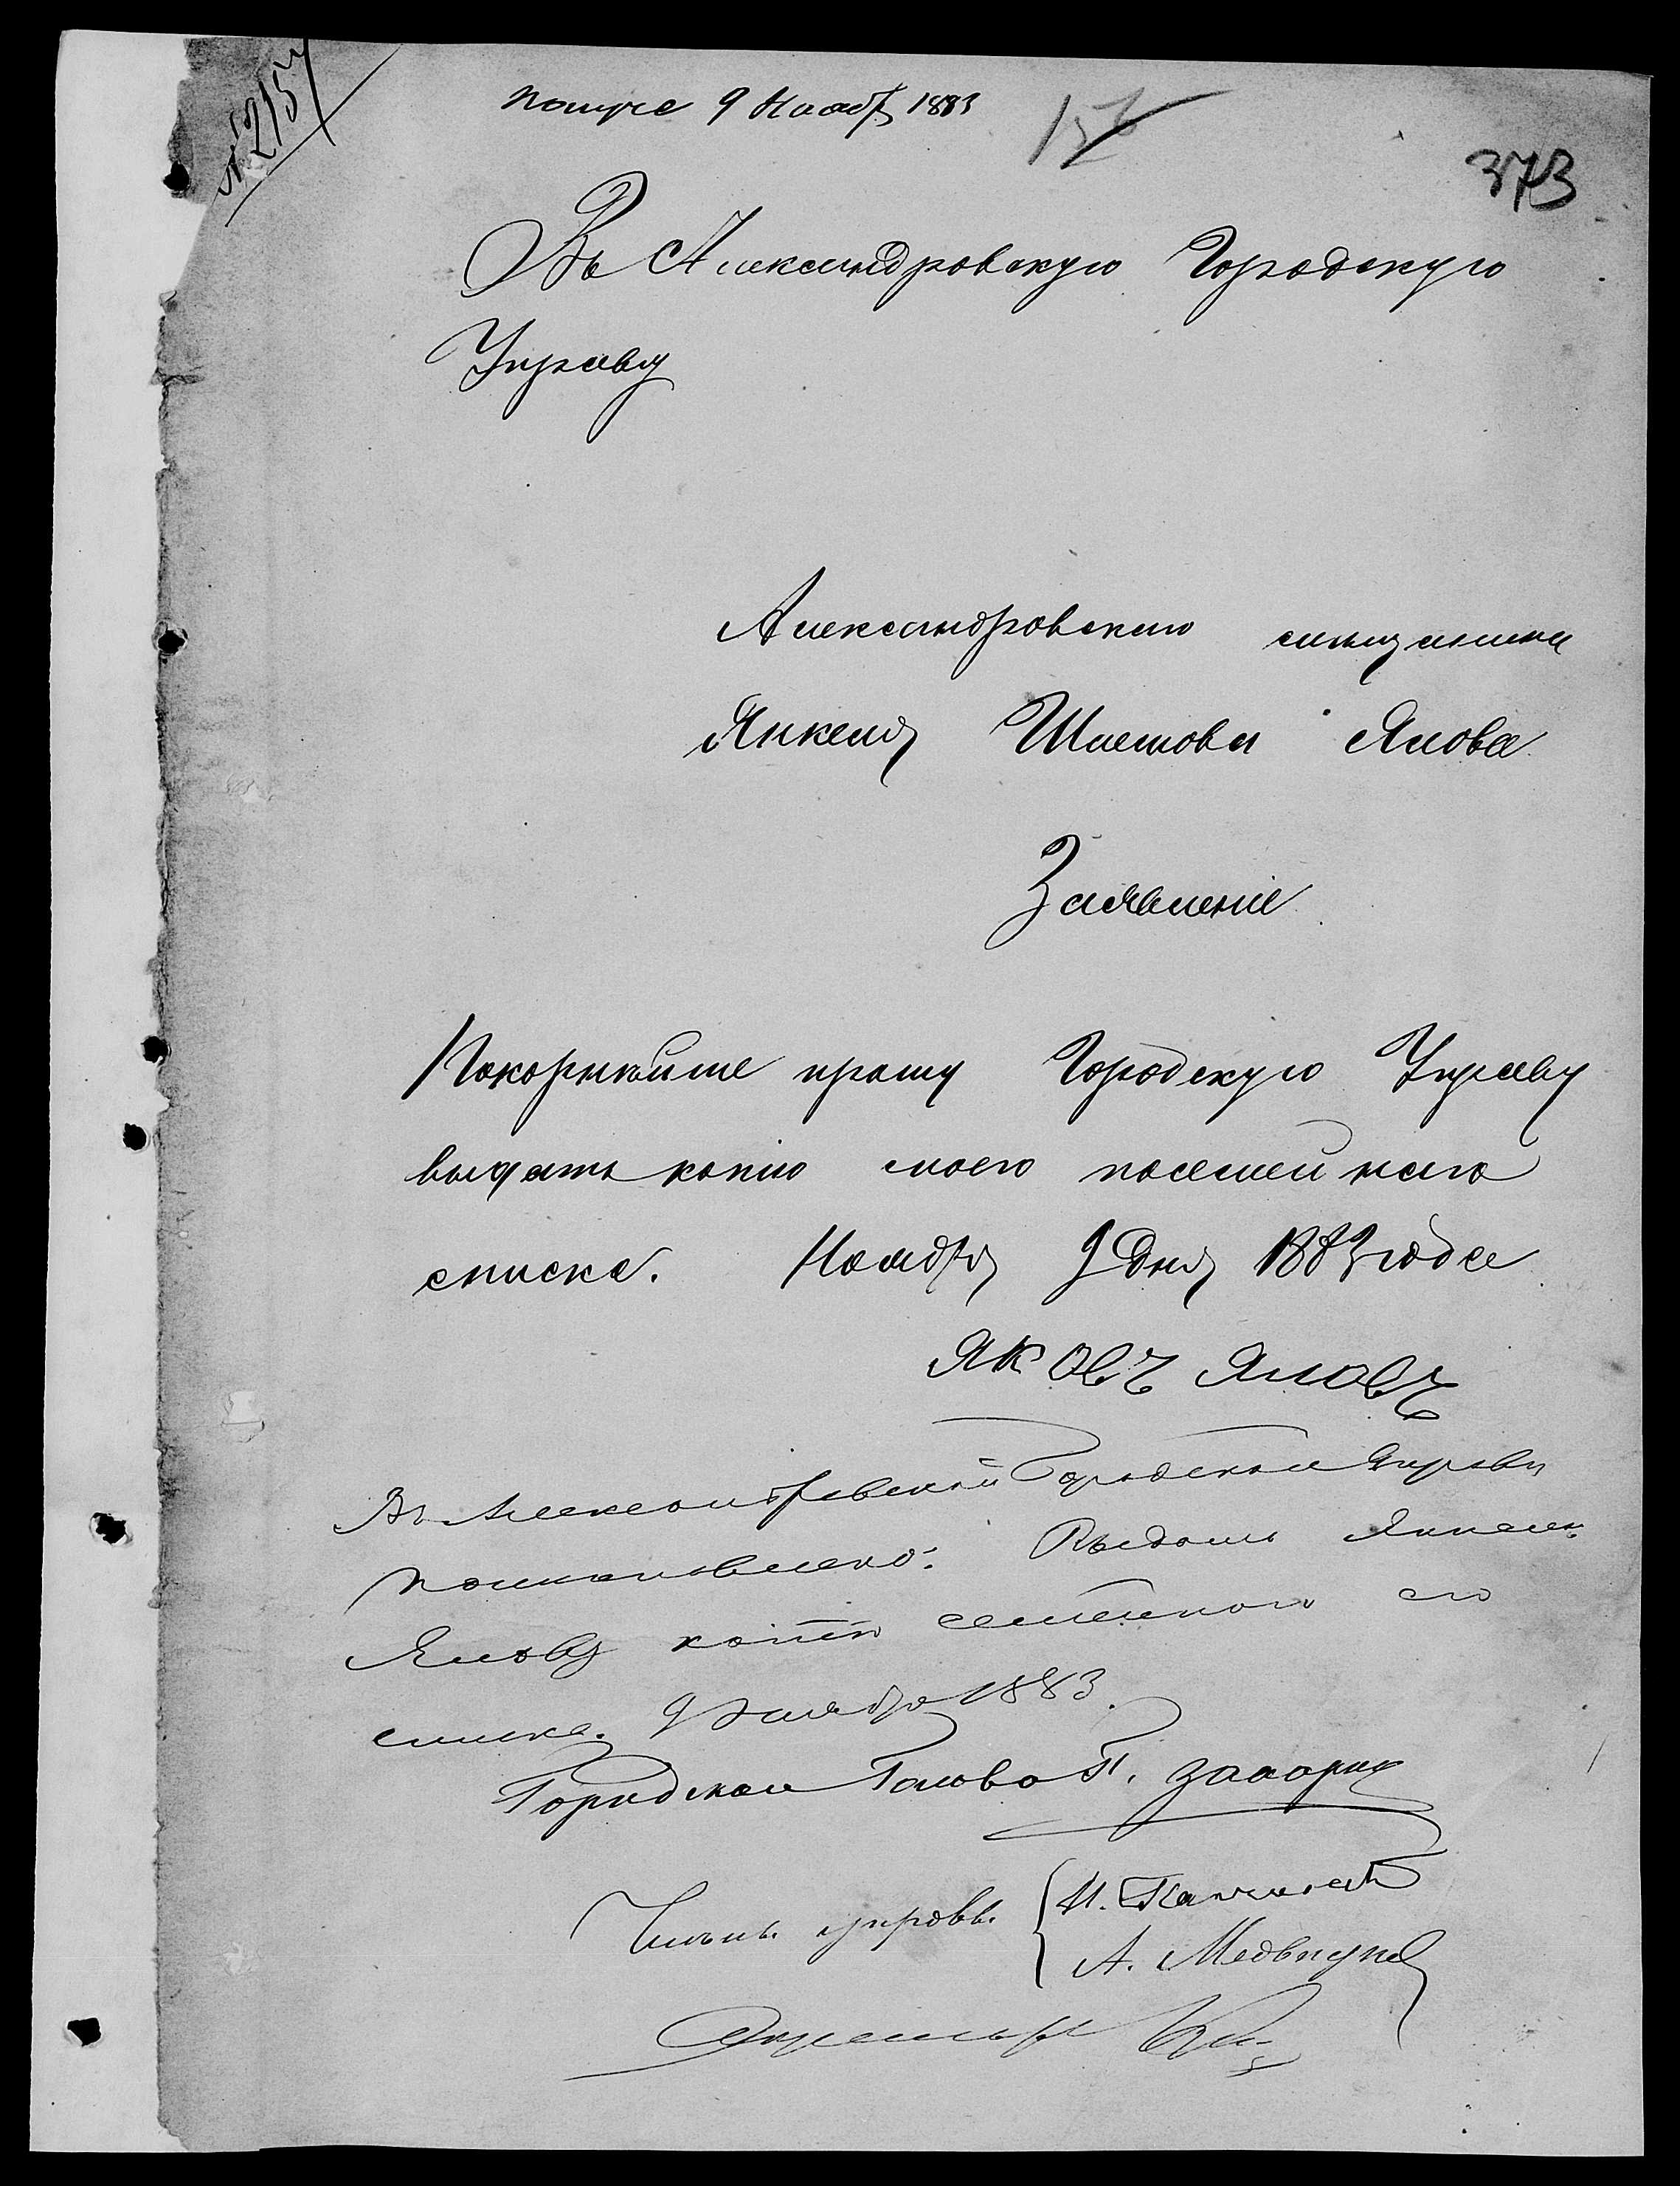 № 2157
получе 9 Ноябр 1883
373
Въ Александровскую Городскую
Управу
Александровскаго мещанина
Янкеля Шлемова Ялова
Заявленіе
Покорнѣйше прошу Городскую Управу
выдать копію моего посемейнаго
списка. Ноября 9 дня 1883 года
Яковъ Яловъ
Въ Александровской Городской Управѣ
постановлено: Выдать Янкелю
Ялову копію семейного его
списка. 9 Ноября 1883.
Городской Голова
Члены управы
А. Медведу
Секретарь